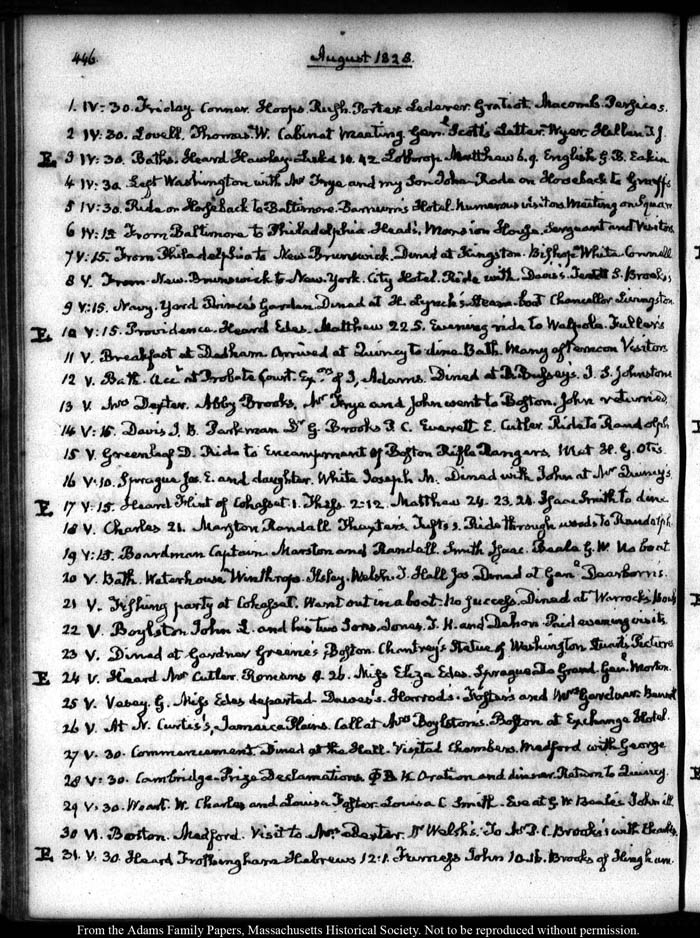 446. August 1828.
1. IV:30. Friday. Connor. Hoops. Rush. Porter. Lederer. Gratiot. Macomb. Persico.
2 IV:30. Lovell. Thomas W. Cabinet Meeting Genl. Scott's Letter. Wyer. Hellen T. J.
E. 3 IV:30. Baths. Heard Hawley Luke 10. 42. Lothrop. Matthew 6. 9. English G. B. Eakin
4 IV:30. Left Washington with Mr Frye and my Son John. Rode on Horseback to
5 IV:30. Ride on Horseback to Baltimore. Barnum's Hotel. numerous visitors Meeting on Square
6 IV:15 From Baltimore to Philadelphia. Head's, Mansion House. Sergeant and Visitors
7 V:15. From Philadelphia to New Brunswick. Dined at Kingston. Bishop White. Connell
8 V. From New Brunswick to New York. City Hotel. Ride with Davis. S. Brooks,
9 V:15. Navy-Yard Prince's Garden Dined at H. Lynch's Steam-boat Chancellor Livingston
E. 10 V:15. Providence. Heard Edes. Matthew 22 5. Evening ride to Walpole. Fuller's
11 V. Breakfast at Dedham Arrived at Quincy to dine. Bath. Many afternoon Visitors
12 V. Bath. Acct at Probate Court. of J. Adams. Dined at B Bussey's. J. S. Johnston
13 V. Mrs Dexter. Abby Brooks, Mr Frye and John went to Boston. John returned,
14 V:15. Davis J. B. Parkman Dr G. Brooks P. C. Everett E. Cutler. Ride to Randolph
15 V. Greenleaf D. Ride to Encampment of Boston Rifle Rangers. Met H. G. Otis.
16 V:10. Sprague Jos. E. and daughter. White Joseph M. Dined with John at Mr Quincy's
E. 17 V:15. Heard Flint of Cohasset 1. Thess. 2:12. Matthew 24. 23. 24. Isaac Smith to dine
18 V. Charles 21. Marston Randall Thayters. Tufts s. Ride through woods to Randolph
19 V:15. Boardman Captain Marston and Randall. Smith Isaac. Beale G. W. No boat
20 V. Bath. Waterhouse Winthrop. Ilsley. Welsh. T. Hall Jos Dined at Genl Dearborn's.
21 V. Fishing party at Cohasset. Went out in a boat. No success. Dined at Warrock's House
22 V. Boylston John L. and his two Sons. Jones. T. K. and Dehon. Paid evening visits
23 V. Dined at Gardner Greene's, Boston. Chantrey's Statue of Washington Stuart's Pictures
E 24 V. Heard Mr Cutler. Romans 9. 26. Miss Eliza Edes. Sprague De Grand. Genl Morton.
25 V. Vesey. G. Miss Edes departed. Dawes's. Harrods. Foster's and Mrs Gardner.
26 V. At N. Curtis's, Jamaica Plains. Call at Mrs Boylston's. Boston at Exchange Hotel.
27 V. 30. Commencement. Dined at the Hall. Visited Chambers. Medford with George
28 V:30. Cambridge. Prize Declamations. ΦBK Oration and dinner. Return to Quincy.
29 V:30. W. Charles and Louisa Foster. Louisa C. Smith. Eve at G W Beale's John ill.
30 VI. Boston. Medford. Visit to Mrs. Dexter. Dr Welsh's. To Mr P. C. Brooks's with Charles,
E. 31. V:30. Heard Frothingham Hebrews 12:1. Furness John 10. 16. Brooks of Hingham.
From the Adams Family Papers, Massachusetts Historical Society. Not to be reproduced without permission.